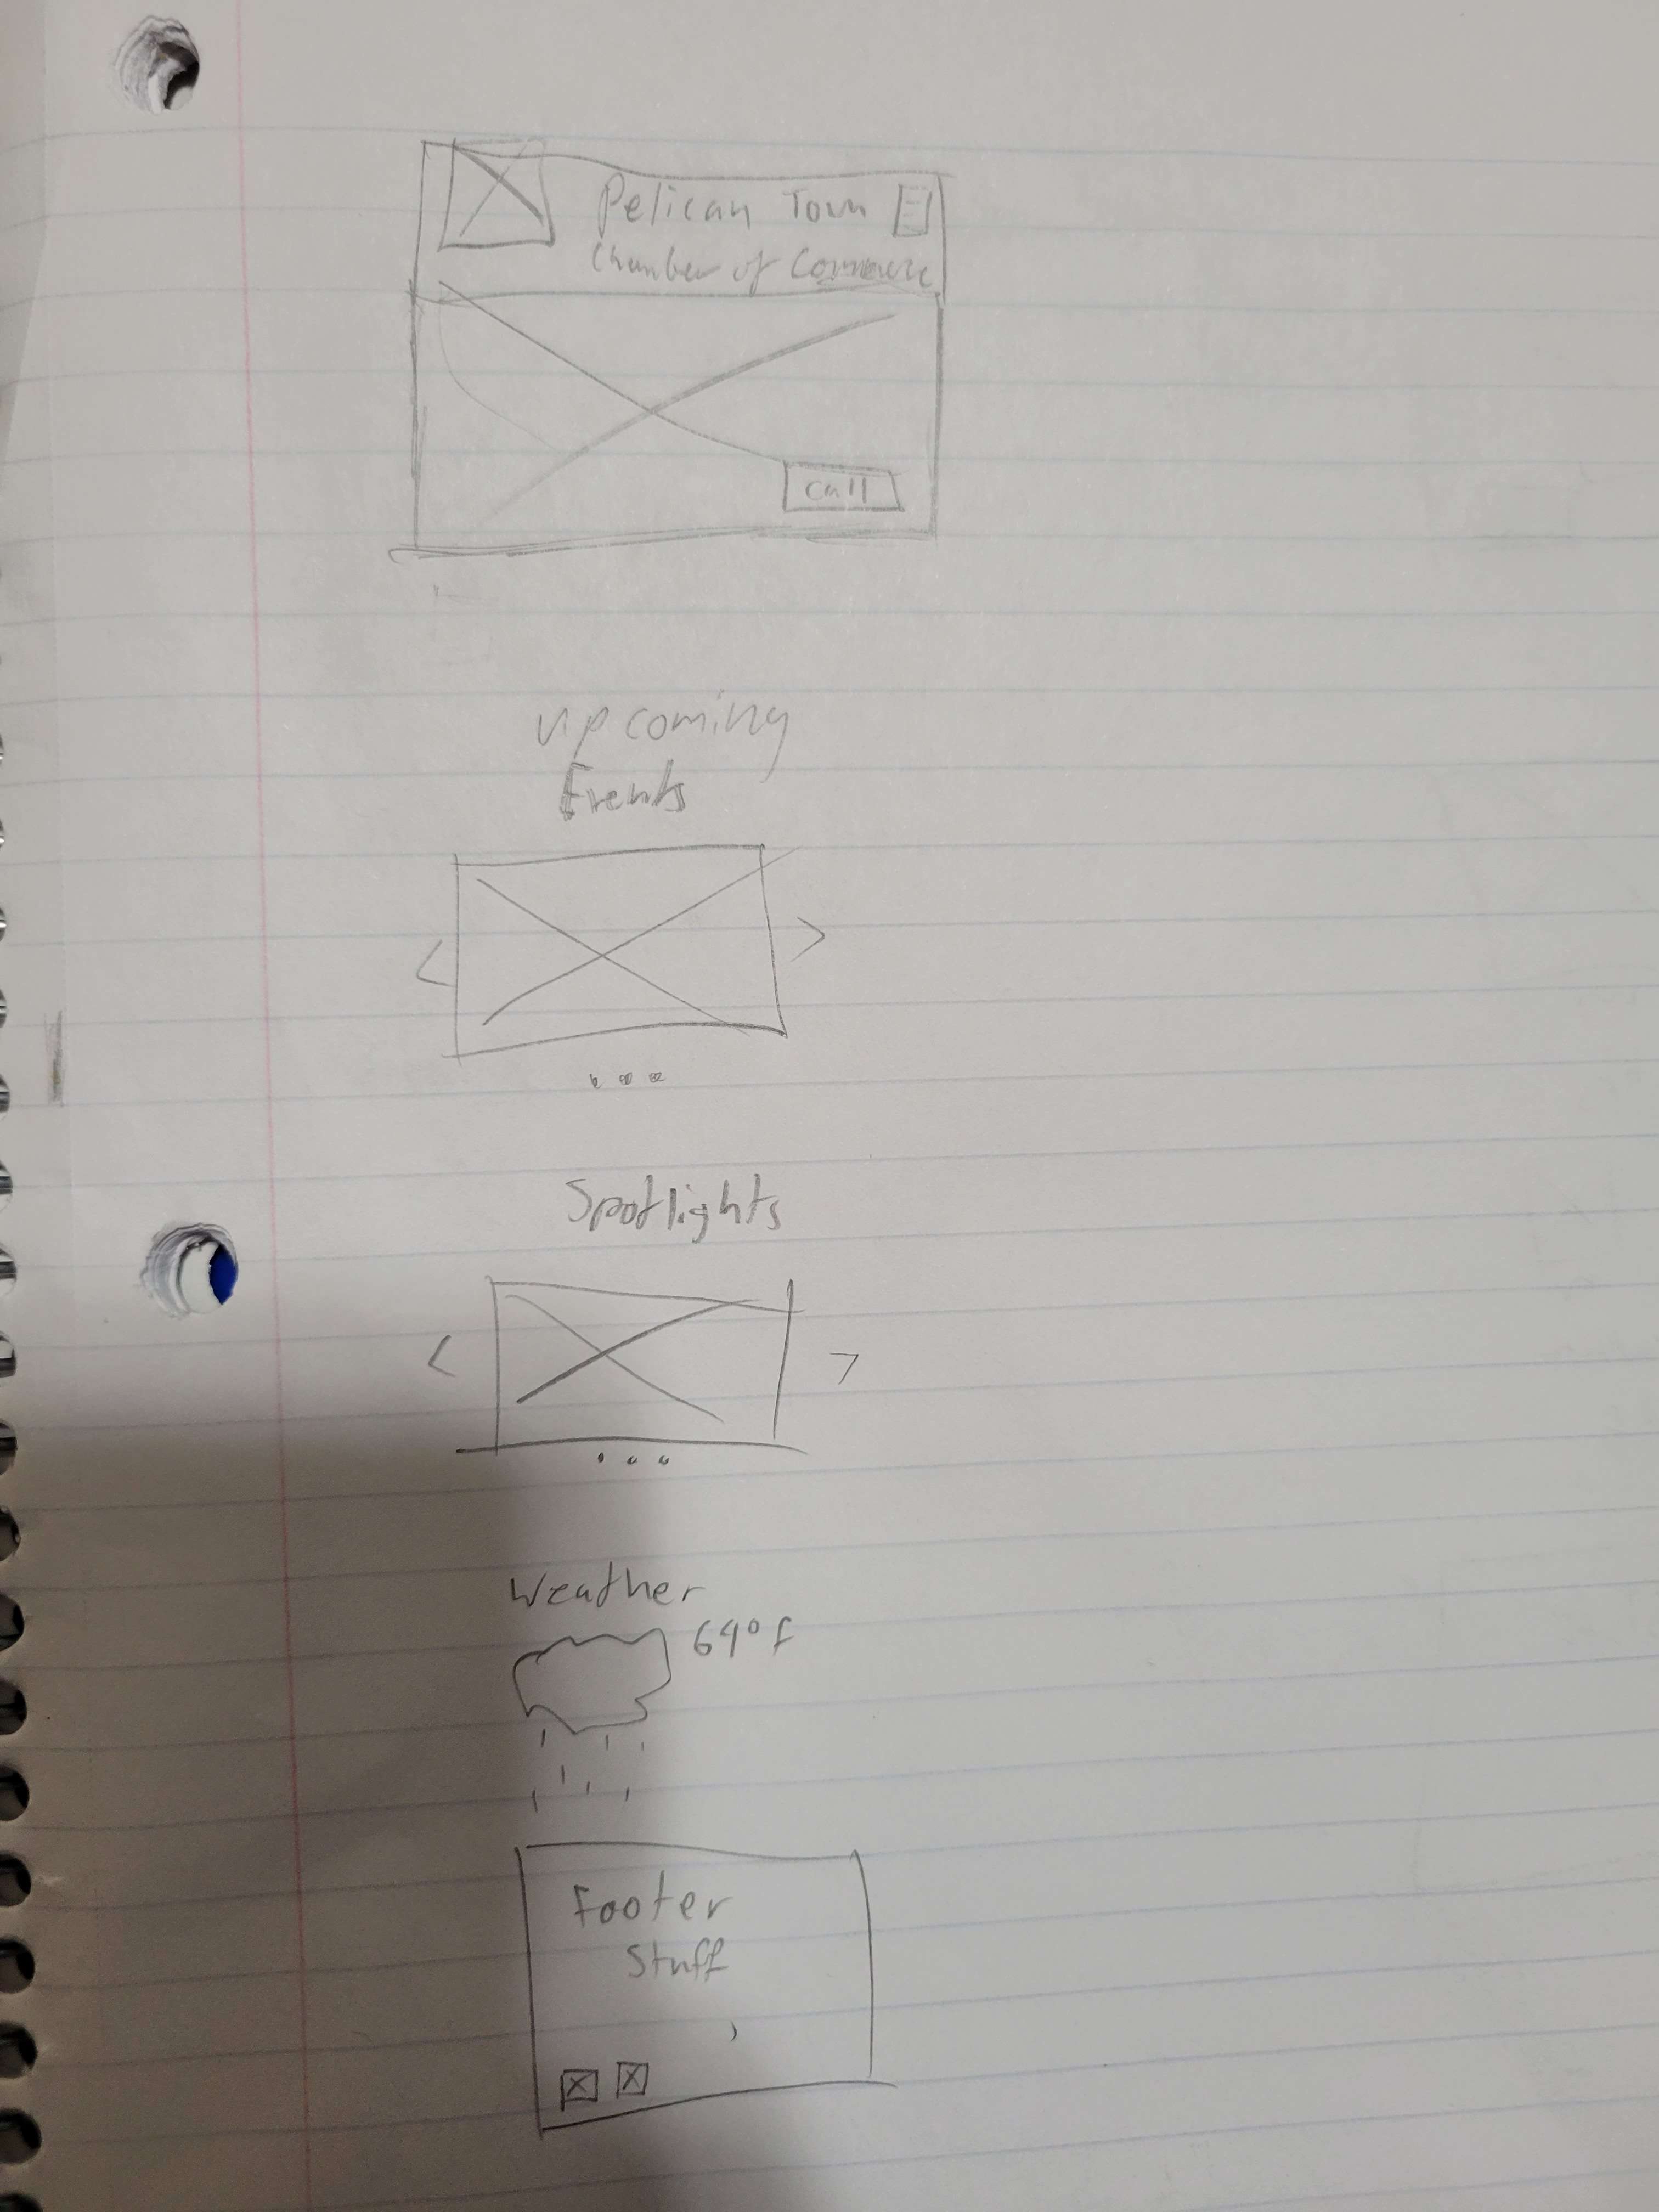 Pelican Town
Chamber of Commerce
Call
Upcoming
Events
<
>
Spotlights
<
>
Weather
69°F
Footer
Stuff